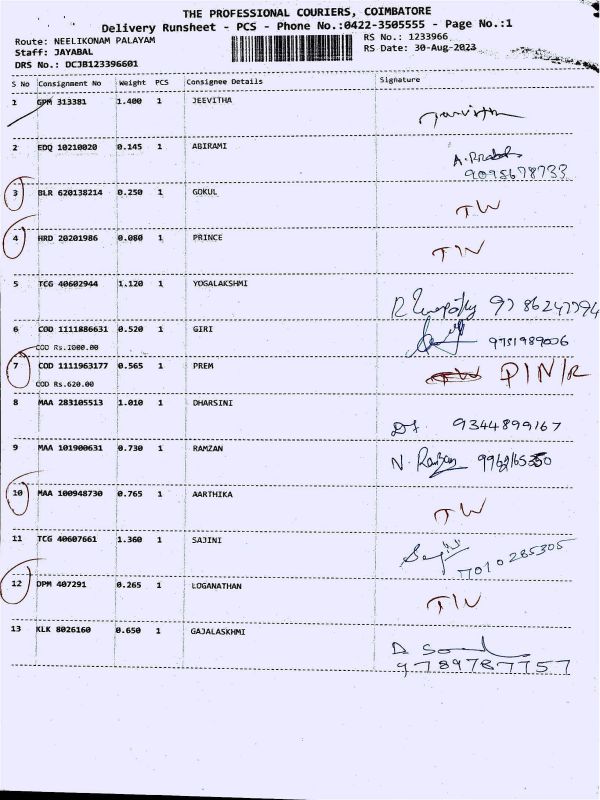 THE PROFESSIONAL COURIERS, COIMBATORE
Delivery Runsheet - PCS - Phone No.:0422-3505555 - Page No.:1
Route: NEELIKONAM PALAYAM RS No.: 1233966
Staff: JAYABAL RS Date: 30-Aug-2023
DRS No.: DCJB123396601
S No Consignment No Weight PCS Consignee Details Signature
1 GPM 313381 1.400 1 JEEVITHA
2 EDQ 10210020 0.145 1 ABIRAMI
9095678733
3 BLR 620138214 0.250 1 GOKUL
TW
4 HRD 20201986 0.080 1 PRINCE
TW
5 TCG 40602944 1.120 1 YOGALAKSHMI
6 COD 1111886631 0.520 1 GIRI
COD Rs.1000.00
7 COD 1111963177 0.565 1 PREM PIN/R
COD Rs.620.00
8 MAA 283105513 1.010 1 DHARSINI
9344899167
9 MAA 101900631 0.730 1 RAMZAN
N. Ramzan
10 MAA 100948730 0.765 1 AARTHIKA
TW
11 TCG 40607661 1.360 1 SAJINI
7010285305
12 DPM 407291 0.265 1 LOGANATHAN
TW
13 KLK 8026160 0.650 1 GAJALASKHMI
9789787757